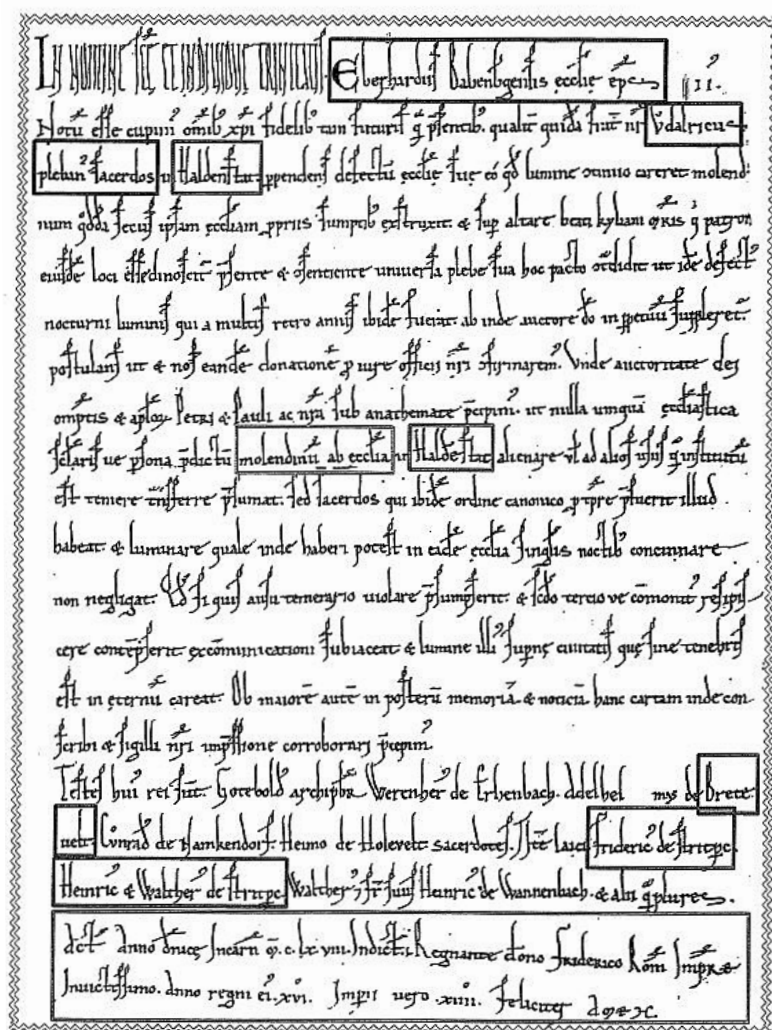 IN NOMINE SCE ET INDIVIDUE TRINITATIS Eberhardus Babenbgensis ecclie epc II.
Notu esse cupim omib xpi fidelib tam futuris q psentib. qualit quida frat nr Udalricus
pleban sacerdos in Haldenstat ppendens defectu ecclie sue eo qd lumine careret molendi
num qdda secus ipsam eccliam ppriis sumptib exstruxit. & sup altare beati kyliani mris q patron
eiusde loci esse dinoscit psente & osentiente universa plebe sua hoc pacto otdidit ut ide defect
nocturni luminis qui a multis retro annis ibide fuerat. ab inde auctore do in ppetuu suppleret.
postulans ut & nos eande donatione p iure officii nri ofirmarem. Unde auctoritate dei
omptis & aplox Petri & Pauli ac nra sub anathemate pcipim. ut nulla umqua ecclesiastica
sclaris ve psona pdictu molendinu ab ecclia in Haldestat alienare vl ad alios usus q institutu
est temere tnsferre psumat. sed sacerdos qui ibide ordine canonico ptpre pfuerit illud
habeat. & luminare quale inde haberi potest in eade ecclia singlis noctib concinnare
non negligat. Qd si quis ausu temerario violare psumpserit. & scdo tercio ve comonit resipis
cere contepserit excomunicationi subiaceat & lumine illi supne civitatis que sine tenebris
est in eternu careat. Ob maiore aute in posteru memoria & noticia hanc cartam inde con
scribi & sigilli nri impssione corroborari pcepim.
Testes hui rei sut. Gotebold archipbr. Werenher de Erhenbach. Adelhel mus de Brete
uelt. Cunrad de Hamkendorf. Heimo de Holevelt sacerdotes. Iste laici Frideric de stritpc.
Heinric & Walther de stritpc. Walther & fr suus Heinric de Wannenbach. & alii qplures.
Act Anno dnice Incarn M.C.LX.VIII. Indict. Regnante dono Friderico Rom Impre
Invictissimo. Anno regni ei. XVI. Imperii vero. XIIII. Feliciter Amen.